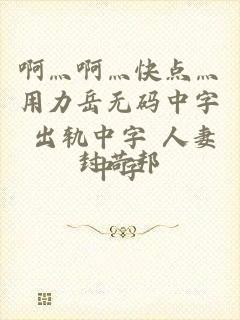 啊灬啊灬快点灬
用力岳无码中字
出轨中字 人妻